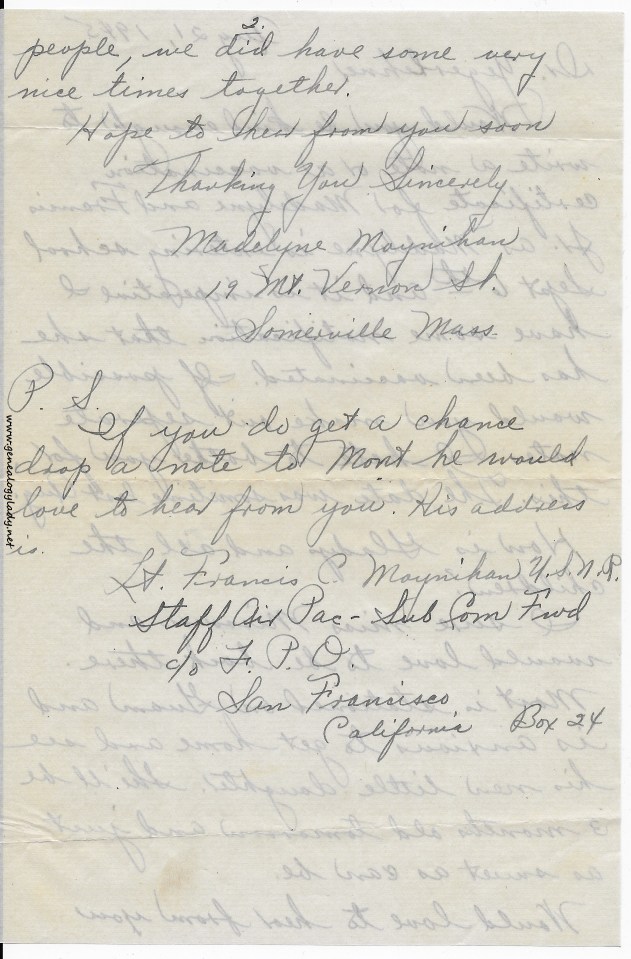 2.
people, we did have some very
nice times together.
Hope to hear from you soon
Thanking You Sincerely
Madelyne Moynihan
19 Mt. Vernon St.
Somerville Mass.
P. S.
If you do get a chance
drop a note to Mont he would
love to hear from you. His address
is.
Lt. Francis C. Moynihan U.S.N.R.
Staff Air Pac - Sub Com Fwd
c/o F. P. O.
San Francisco
California Box 24
www.genealogylady.net